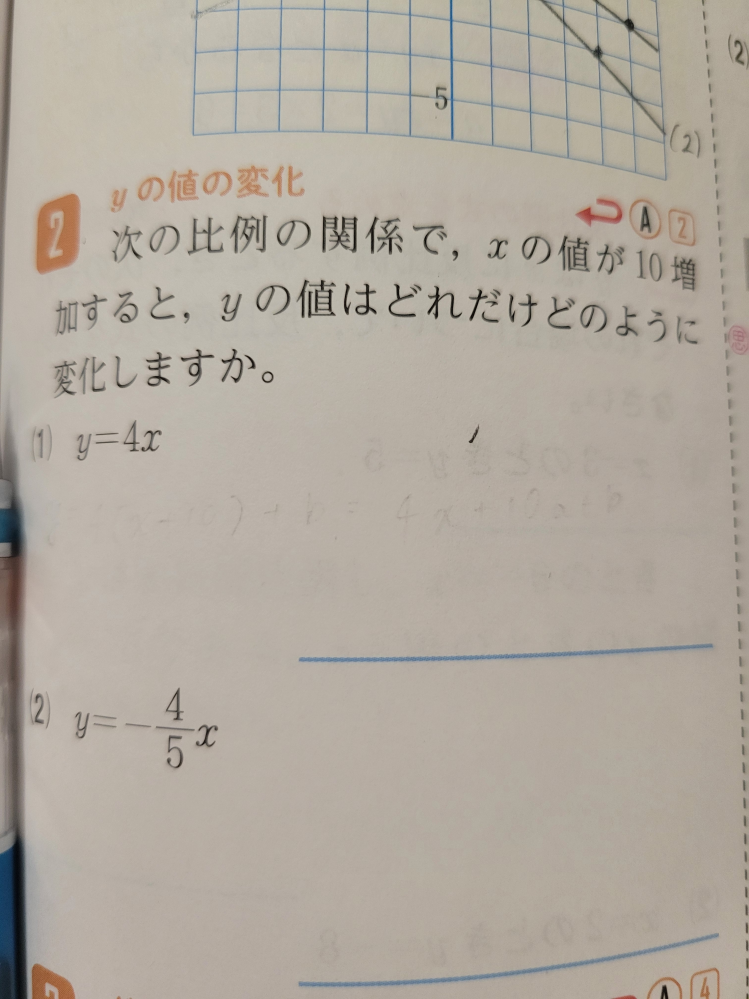 (2)
5
(2)
yの値の変化
A 2
2 次の比例の関係で，xの値が10増
加すると，yの値はどれだけどのように
変化しますか。
(1) y=4x
(2) y=-4/5x
A 4